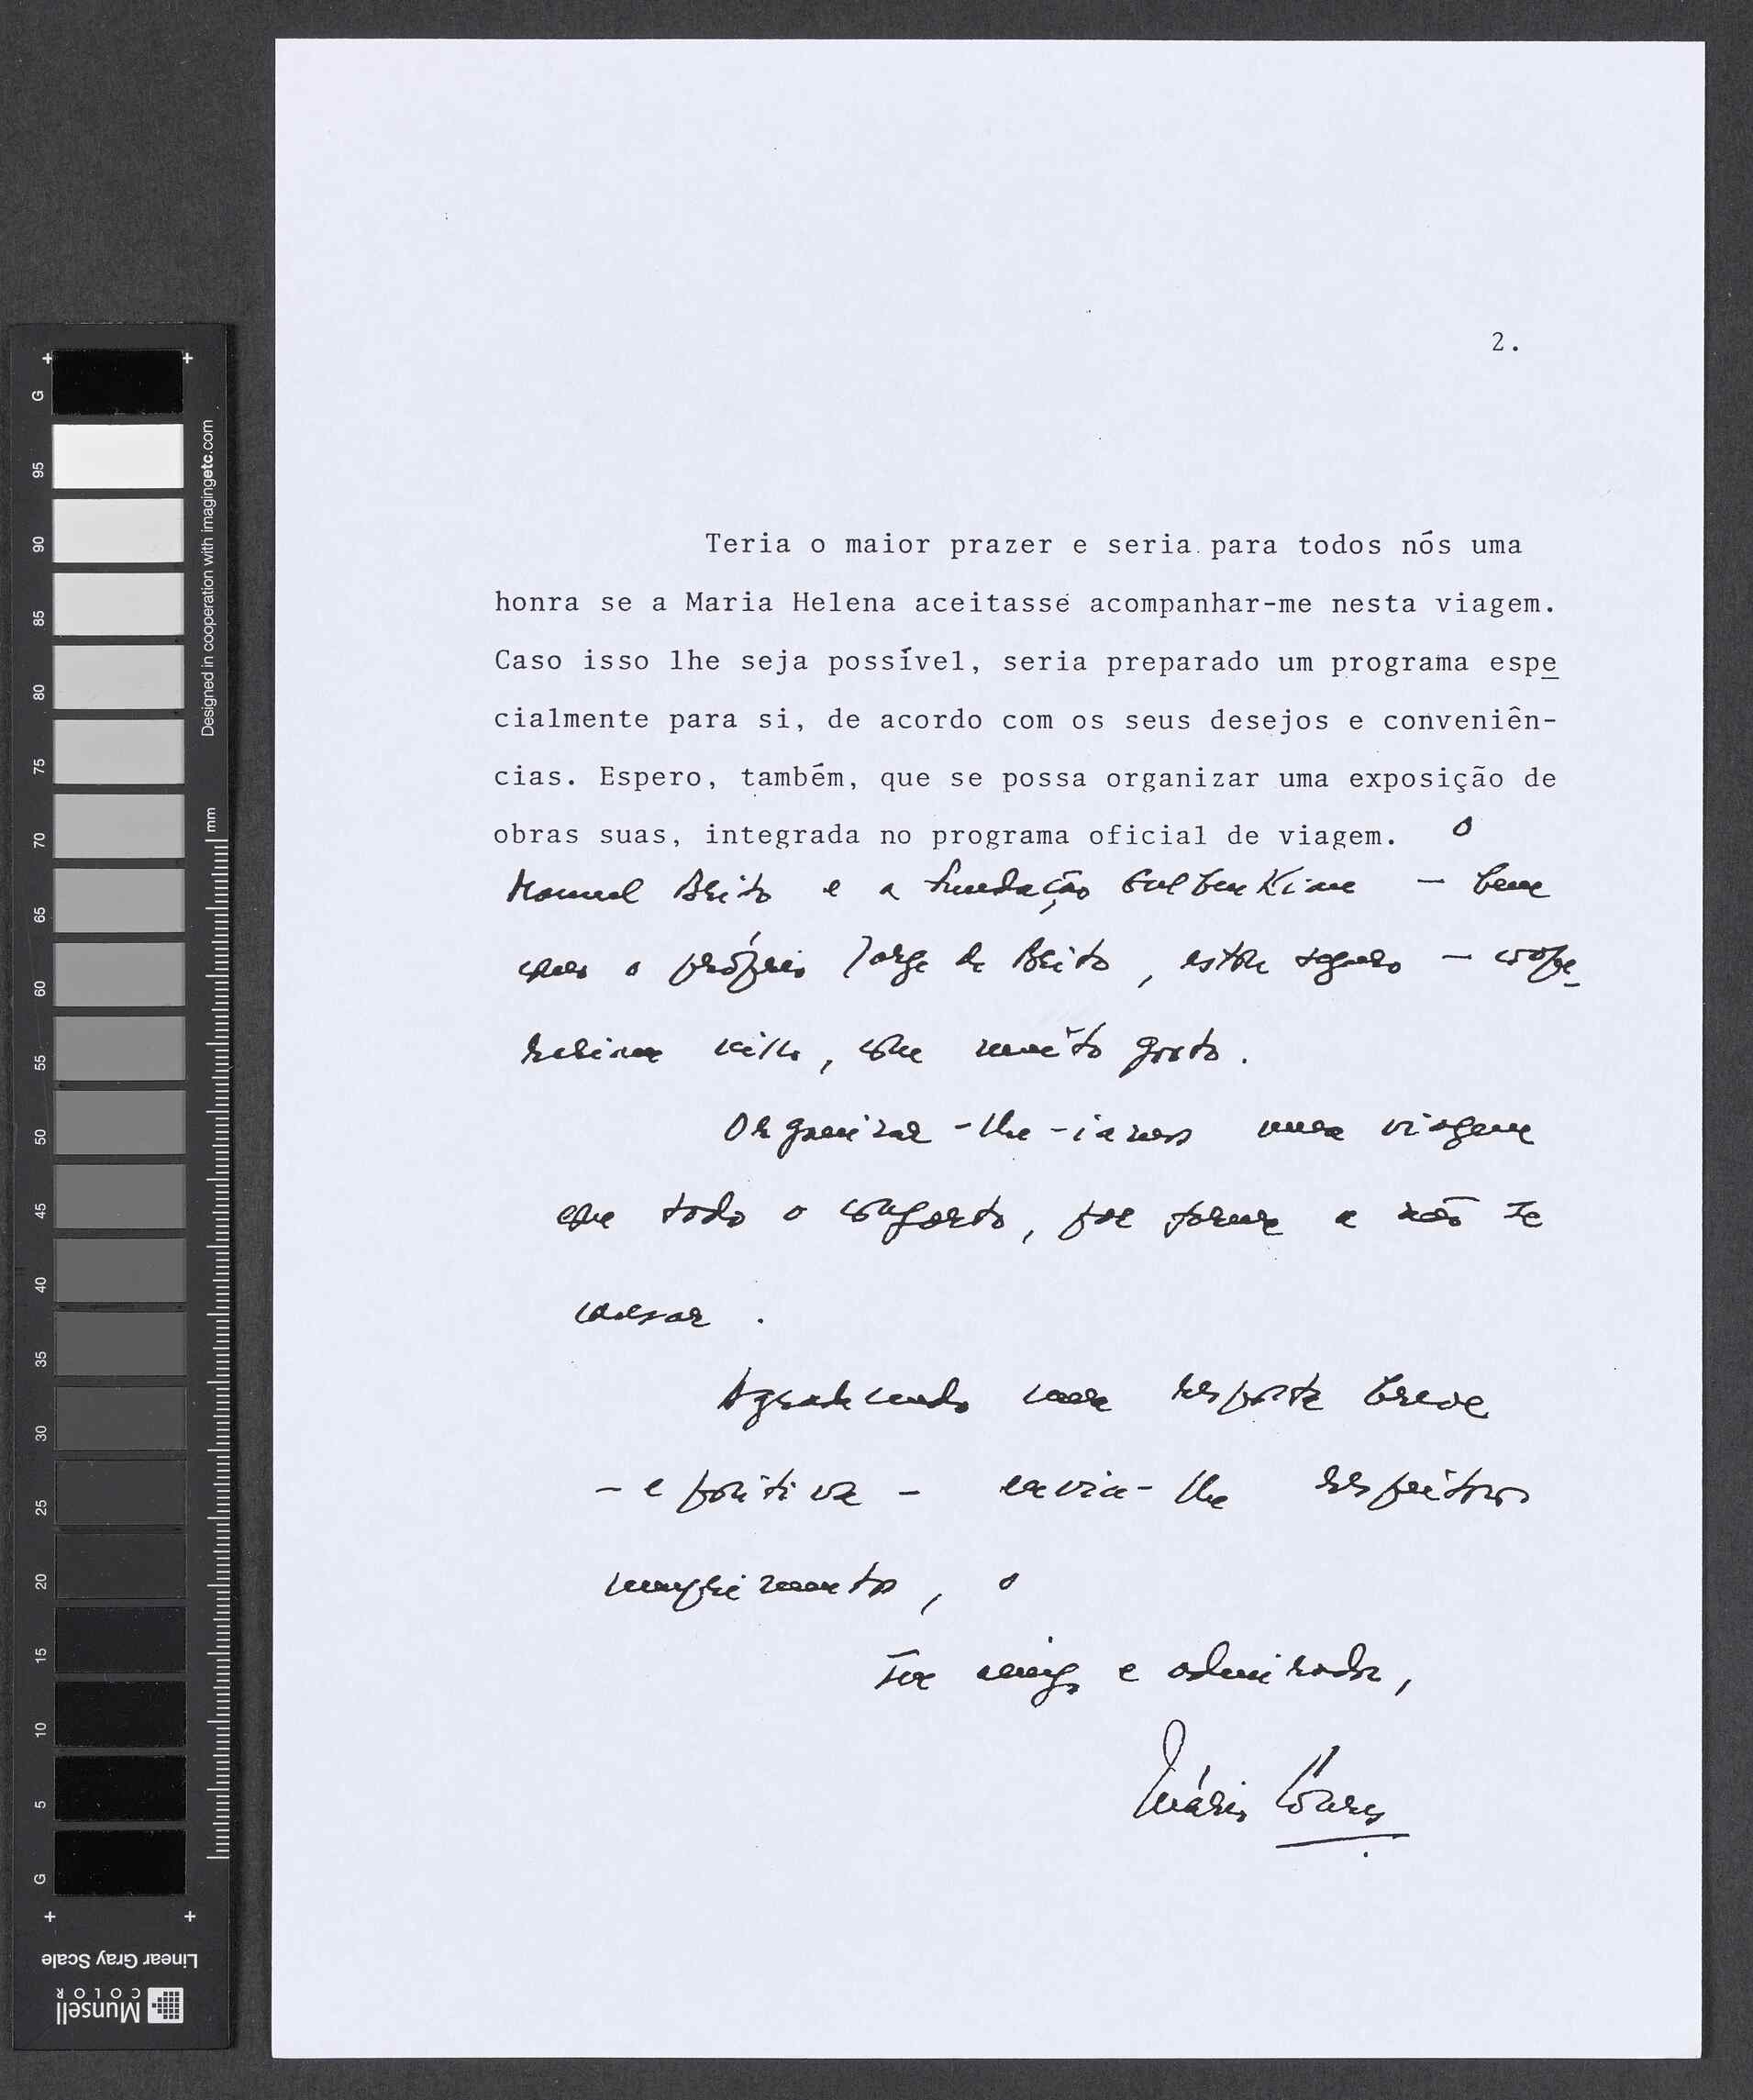 2.
Teria o maior prazer e seria para todos nós uma
honra se a Maria Helena aceitasse acompanhar-me nesta viagem.
Caso isso lhe seja possível, seria preparado um programa espe
cialmente para si, de acordo com os seus desejos e conveniên-
cias. Espero, também, que se possa organizar uma exposição de
obras suas, integrada no programa oficial de viagem. O
Manuel Brito e a Fundação Gulbenkian - bem
como o próprio Jorge de Brito, estou seguro - coope-
rariam nisso, com muito gosto.
Organizar-lhe-iamos uma viagem
com todo o conforto, por forma a não se
cansar.
Agradecendo uma resposta breve
- e positiva - envia-lhe respeitosos
cumprimentos, o
seu amigo e admirador,
Mário Soares
G
95
90
85
80
75
70
65
60
55
50
45
40
35
30
25
20
15
10
5
G
Designed in cooperation with imagingetc.com
mm
Linear Gray Scale
Munsell
COLOR